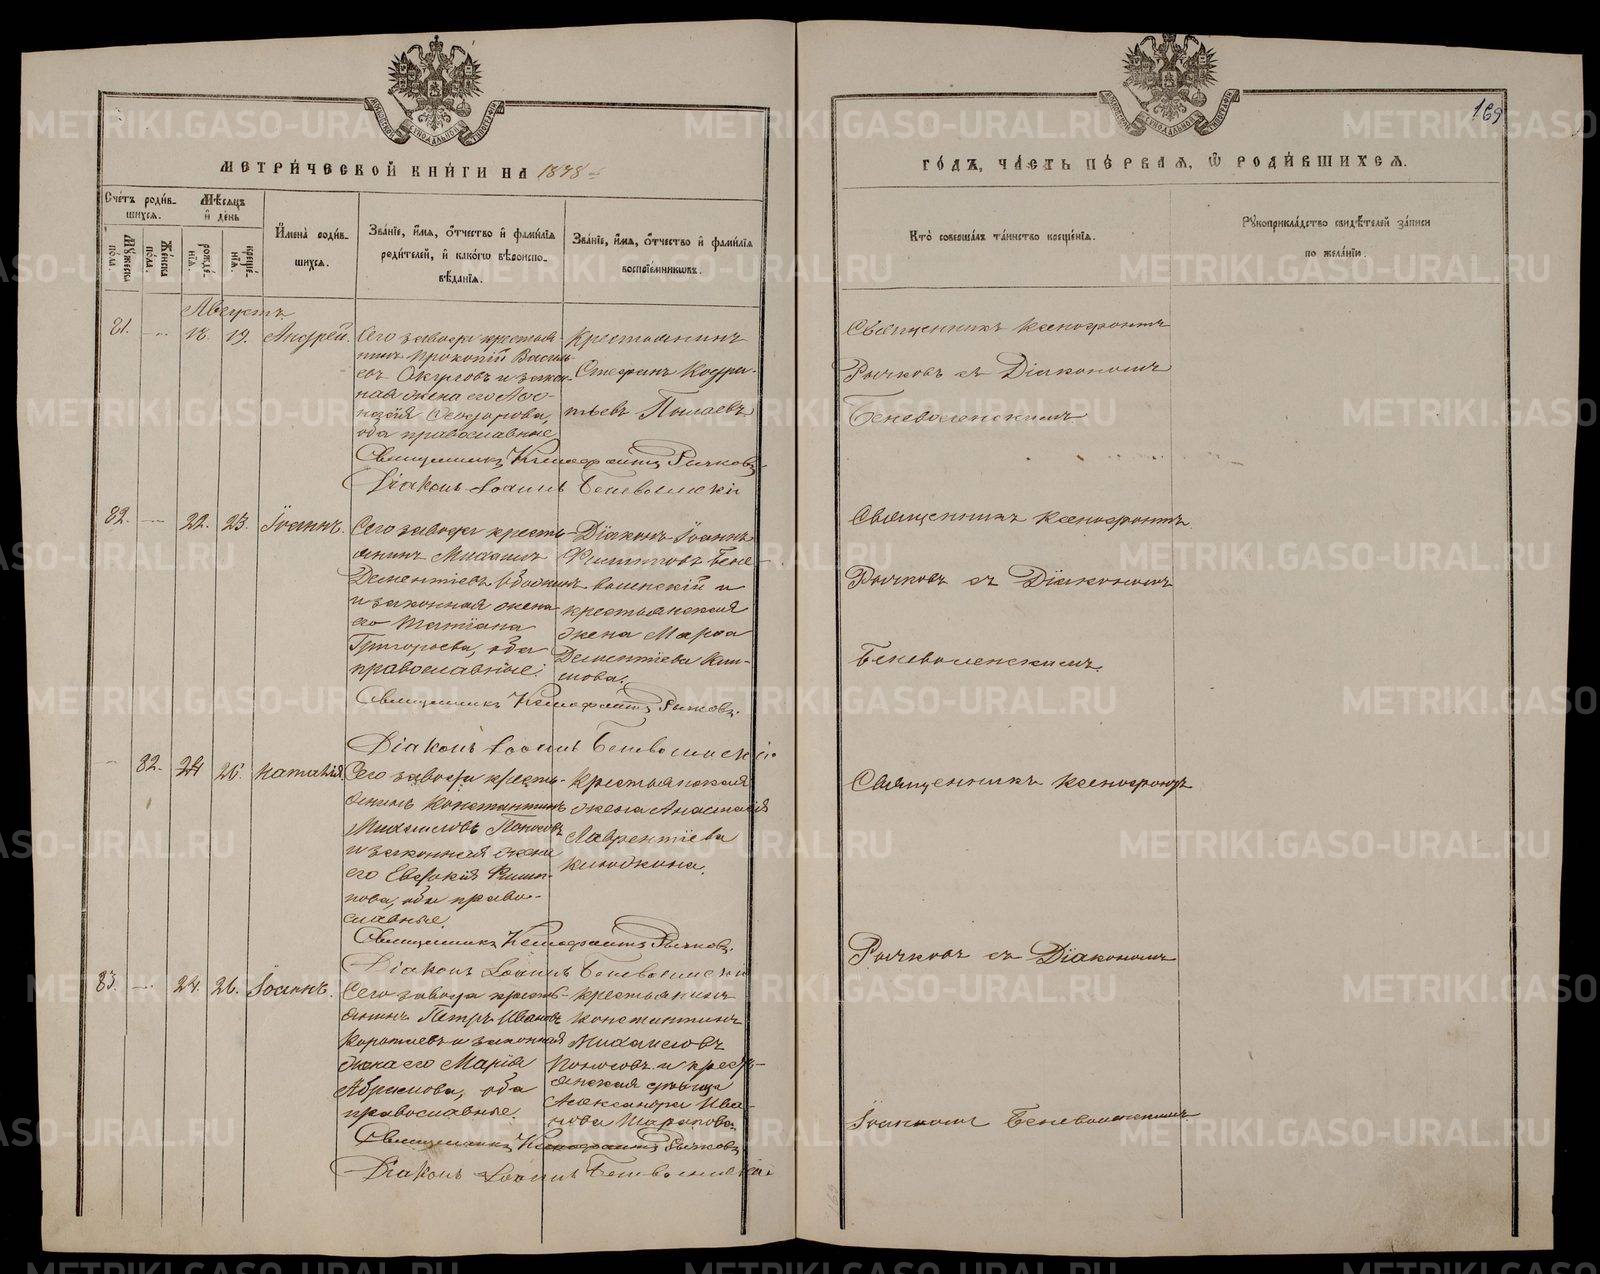 МЕТРИ́ЧЕСКОЙ КНИ́ГИ НА 1878
Сче́тъ роди́в-
шихся.
Мѣсяцъ
и̂ де́нь
Мꙋ́жеска
по́ла.
Же́нска
по́ла.
рожде́-
нїѧ.
креще́-
нїѧ.
И̂мена̀ роди́в-
шихся.
Зва́нїе, и̂́мя, ѻ̂́тчество и̂ фами́лїѧ
роди́телей, и̂ како́гѡ вѣроиспо-
вѣ́данїѧ.
Зва́нїе, и̂́мя, ѻ̂́тчество и̂ фами́лїѧ
воспрїе́мникѡвъ.
Августъ
81. — 18. 19. Андрей.
Сего завода крестья-
нинъ Прокопій Василь-
евъ Окуловъ и закон-
ная жена его
Ѳеодорова,
оба православные
Крестьянинъ
Стефанъ Кодра-
тьевъ
Священникъ Ксенофонтъ Рычковъ
Діаконъ Іоаннъ Беневоленскій
82. — 22. 23. Іоаннъ.
Сего завода кресть-
янинъ Михаилъ
Дементіевъ
и законная жена
его Татіана
Григорьева, оба
православные.
Діаконъ Іоаннъ
Филипповъ Бене-
воленскій и
крестьянская
жена Марѳа
Дементіева
Священникъ Ксенофонтъ Рычковъ.
Діаконъ Іоаннъ Беневоленскій
— 82. 24 26. Наталія.
Сего завода кресть-
янинъ Константинъ
Михаиловъ Поносовъ
и законная жена
его Евдокія Филип-
пова, оба право-
славные.
Крестьянская
жена Анастасія
Лаврентіева
Священникъ Ксенофонтъ Рычковъ.
Діаконъ Іоаннъ Беневоленскій
83. — 24. 26. Іоаннъ.
Сего завода кресть-
янинъ Петръ Ивановъ
и законная
жена его Марія
Абрамова, оба
православные.
Крестьянинъ
Константинъ
Михаиловъ
Поносовъ и кресть-
янская дѣвица
Александра Ива-
нова
Священникъ Ксенофонтъ Рычковъ
Діаконъ Іоаннъ Беневоленскій.
169
ГО́ДЪ, ЧА́СТЬ ПЕ́РВАЯ, Ѡ РОДИ́ВШИХСЯ.
Кто̀ соверша́лъ та́инство креще́нїѧ.
Рꙋкоприкла́дство свидѣ́телей за́писи
по жела́нїю.
Священникъ Ксенофонтъ
Рычковъ съ Діакономъ
Беневоленскимъ.
Священникъ Ксенофонтъ
Рычковъ съ Діакономъ
Беневоленскимъ.
Священникъ Ксенофонтъ
Рычковъ съ Діакономъ
Іоанномъ Беневоленскимъ
METRIKI.GASO-URAL.RU